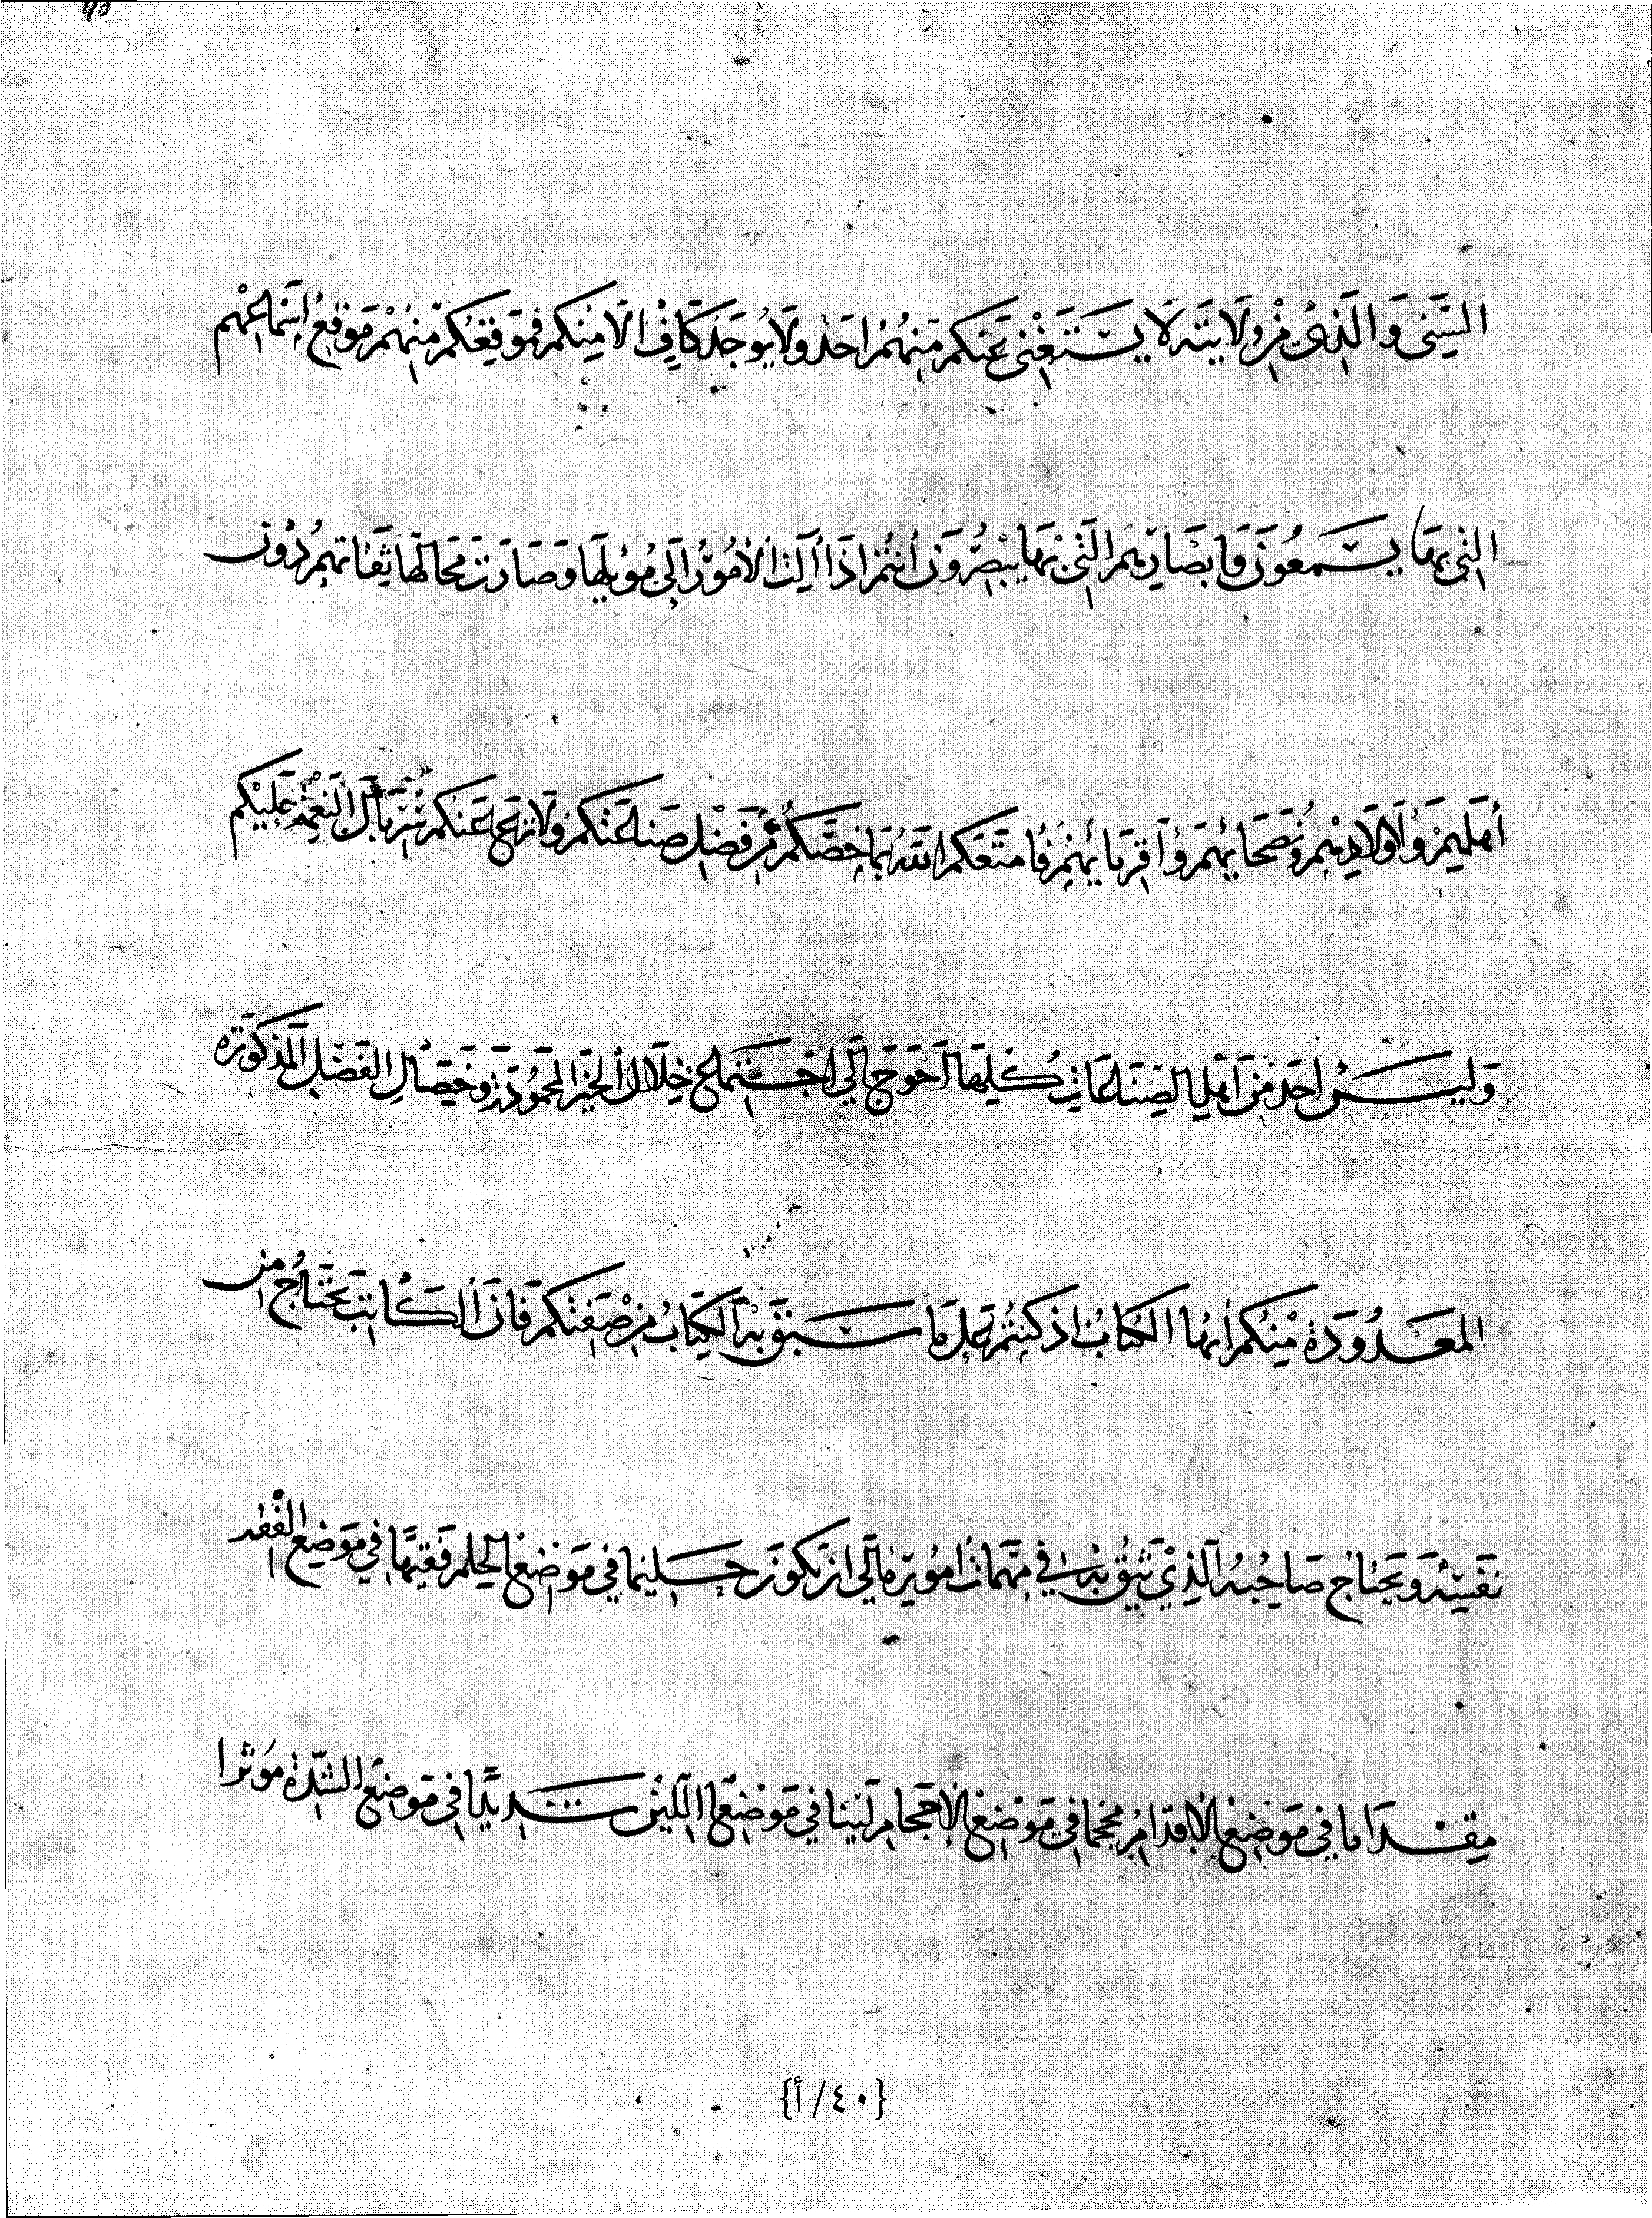 40
السني والذي من ولايته لا يستغني عنكم منهم احد ولا يوجد كاف الا منكم فموقعكم منهم موقع اسماعهم
التي بها يسمعون وابصارهم التي بها يبصرون انتم اذا آلت الامور الى موئلها وصارت محالها ثقاتهم دون
أهليهم واولادهم ونصحائهم واقربائهم فامتعكم الله بما خصكم من فضل صناعتكم ولا نزع عنكم سربال النعمة عليكم
وليس احد من اهل الصناعات كلها احوج الى اجتماع خلال الخير المحمودة وخصال الفضل المذكورة
المعدودة منكم ايها الكتاب اذ كنتم على ما سبق به الكتاب من صفتكم فان الكاتب يحتاج من
نفسه ويحتاج صاحبه الذي يثق به في مهمات اموره الى ان يكون حليما في موضع الحلم فقيها في موضع الفقه
مقداما في موضع الاقدام محجما في موضع الاحجام لينا في موضع اللين شديدا في موضع الشدة موثرا
{٤٠/أ}